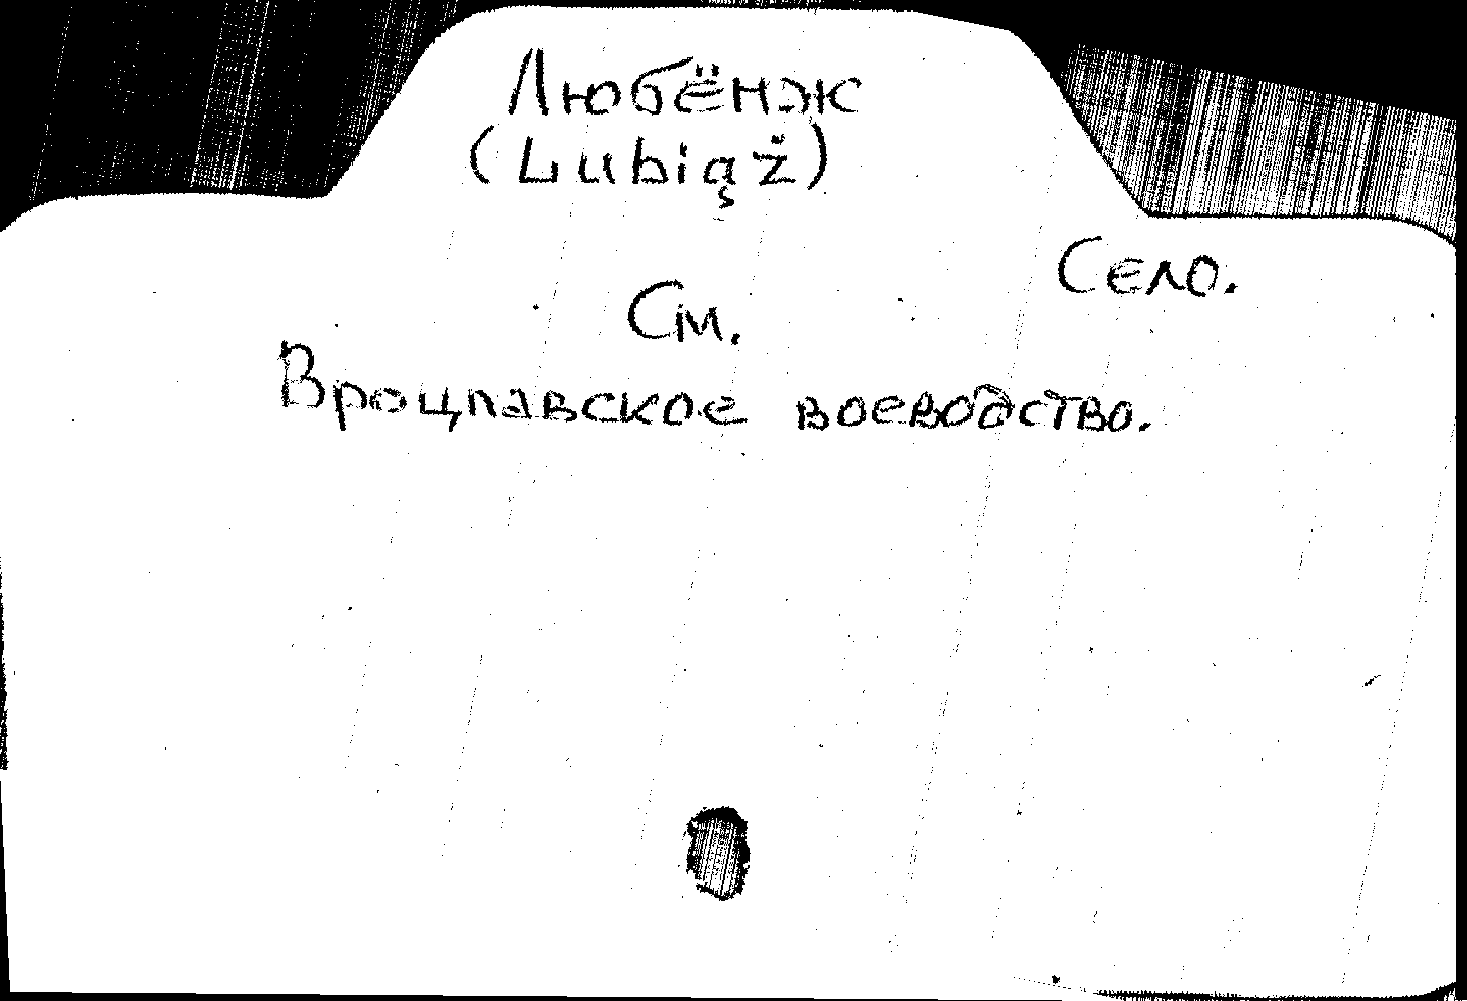 Любёнж
(Lubiąż)
Село.
См.
Вроцлавское воеводство.